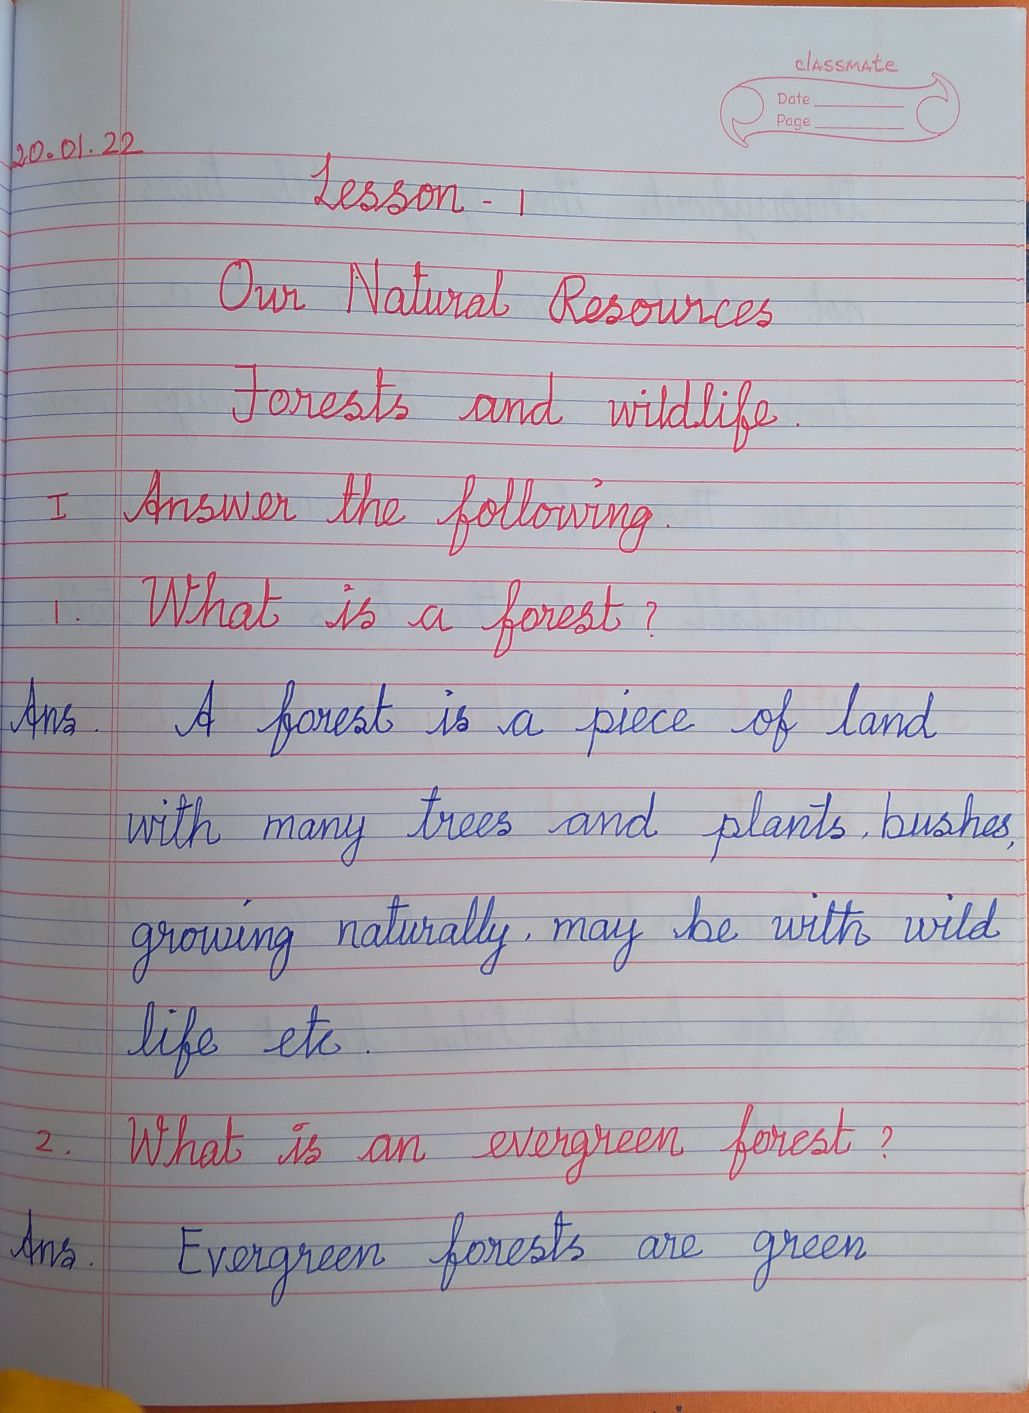 classmate
Date
Page
20.01.22
Lesson - 1
Our Natural Resources
Forests and wildlife.
I Answer the following.
1. What is a forest?
Ans. A forest is a piece of land
with many trees and plants, bushes,
growing naturally, may be with wild
life etc.
2. What is an evergreen forest?
Ans. Evergreen forests are green